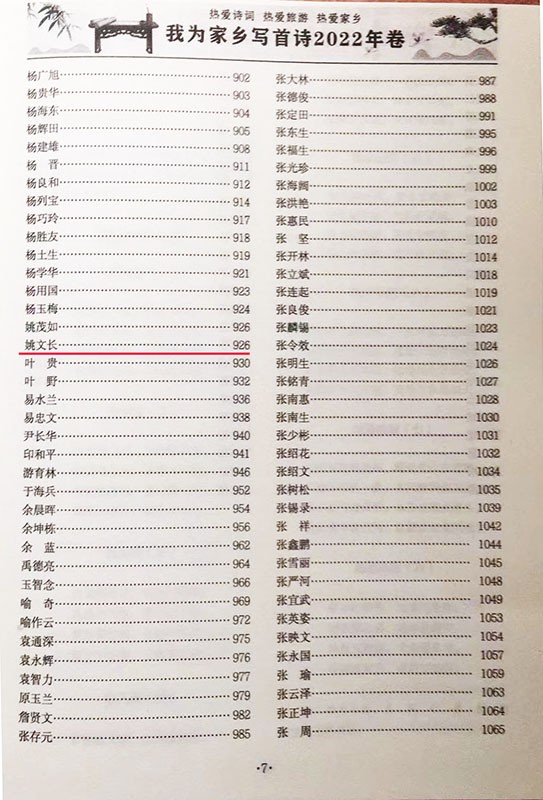 热爱诗词 热爱旅游 热爱家乡
我为家乡写首诗2022年卷
杨广旭 902
杨贵华 903
杨海东 904
杨辉田 905
杨建雄 908
杨 晋 911
杨良和 912
杨列宝 914
杨巧玲 917
杨胜友 918
杨土生 919
杨学华 921
杨用国 923
杨玉梅 924
姚茂如 926
姚文长 926
叶 贵 930
叶 野 932
易水兰 936
易忠文 938
尹长华 940
印和平 941
游育林 946
于海兵 952
余晨晖 954
余坤栋 956
余 蓝 962
禹德亮 964
玉智念 966
喻 奇 969
喻作云 972
袁通深 975
袁永辉 976
袁智力 977
原玉兰 979
詹贤文 982
张存元 985
张大林 987
张德俊 988
张定田 991
张东生 995
张福生 996
张光珍 999
张海阔 1002
张洪艳 1003
张惠民 1010
张 坚 1012
张开林 1014
张立斌 1018
张连起 1019
张良俊 1021
张麟锡 1023
张令效 1024
张明生 1026
张铭青 1027
张南惠 1028
张南生 1030
张少彬 1031
张绍花 1032
张绍文 1034
张树松 1035
张锡录 1039
张 祥 1042
张鑫鹏 1044
张雪丽 1045
张严河 1048
张宜武 1049
张英姿 1053
张映文 1054
张永国 1057
张 瑜 1059
张云泽 1063
张正坤 1064
张 周 1065
·7·